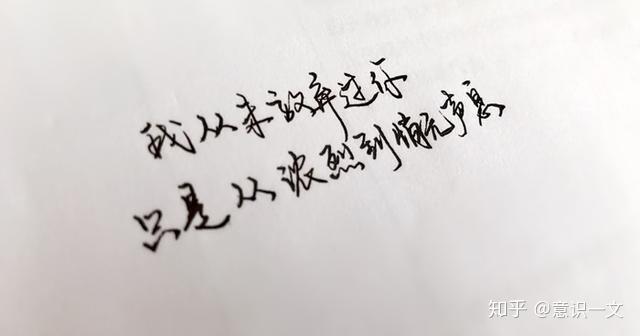 我从未放弃过你
只是从浓烈到悄无声息
知乎 @意识一文